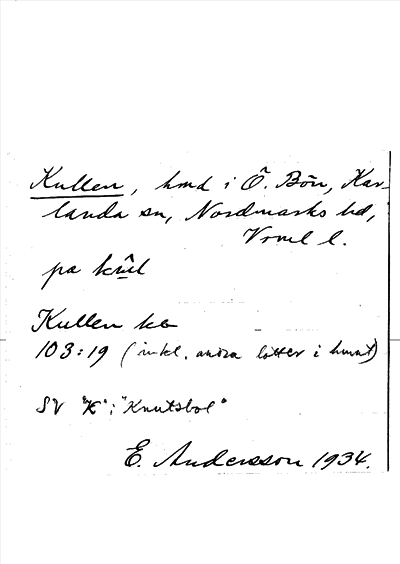 Kullen, hmd i Ö. Bön, Kar-
landa sn, Nordmarks hd,
Vrml l.
pa
Kullen kb
103:19 (inkl. andra lotter i hmnt)
SV "K"; "Knutsbol"
E. Andersson 1934.